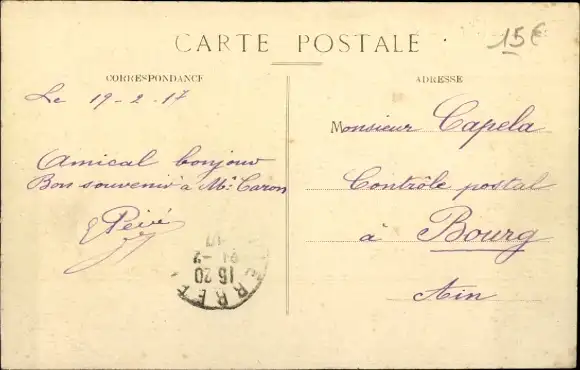 CARTE POSTALE
15€
CORRESPONDANCE
ADRESSE
Le 19-2-17
Monsieur Capela
Amical bonjour
Bon souvenir à Mr Caron
Contrôle postal
à Bourg
Ain
16 20
-2